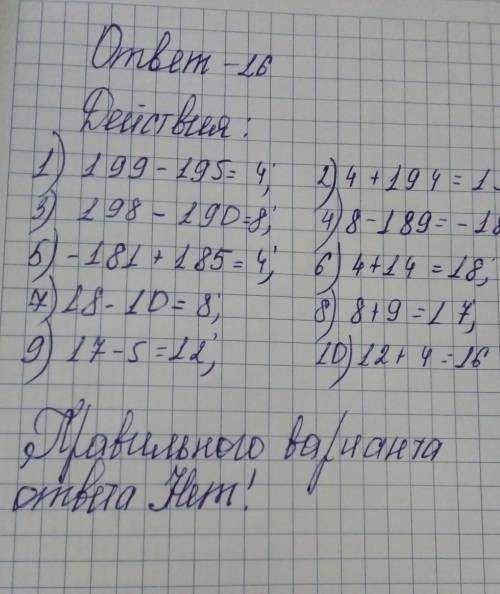 Ответ -16
Действия:
1) 199 - 195 = 4; 2) 4 + 194 = 19
3) 198 - 190 = 8; 4) 8 - 189 = -18
5) -181 + 185 = 4; 6) 4 + 14 = 18;
7) 18 - 10 = 8; 8) 8 + 9 = 17;
9) 17 - 5 = 12; 10) 12 + 4 = 16
Правильного варианта
ответа Нет!